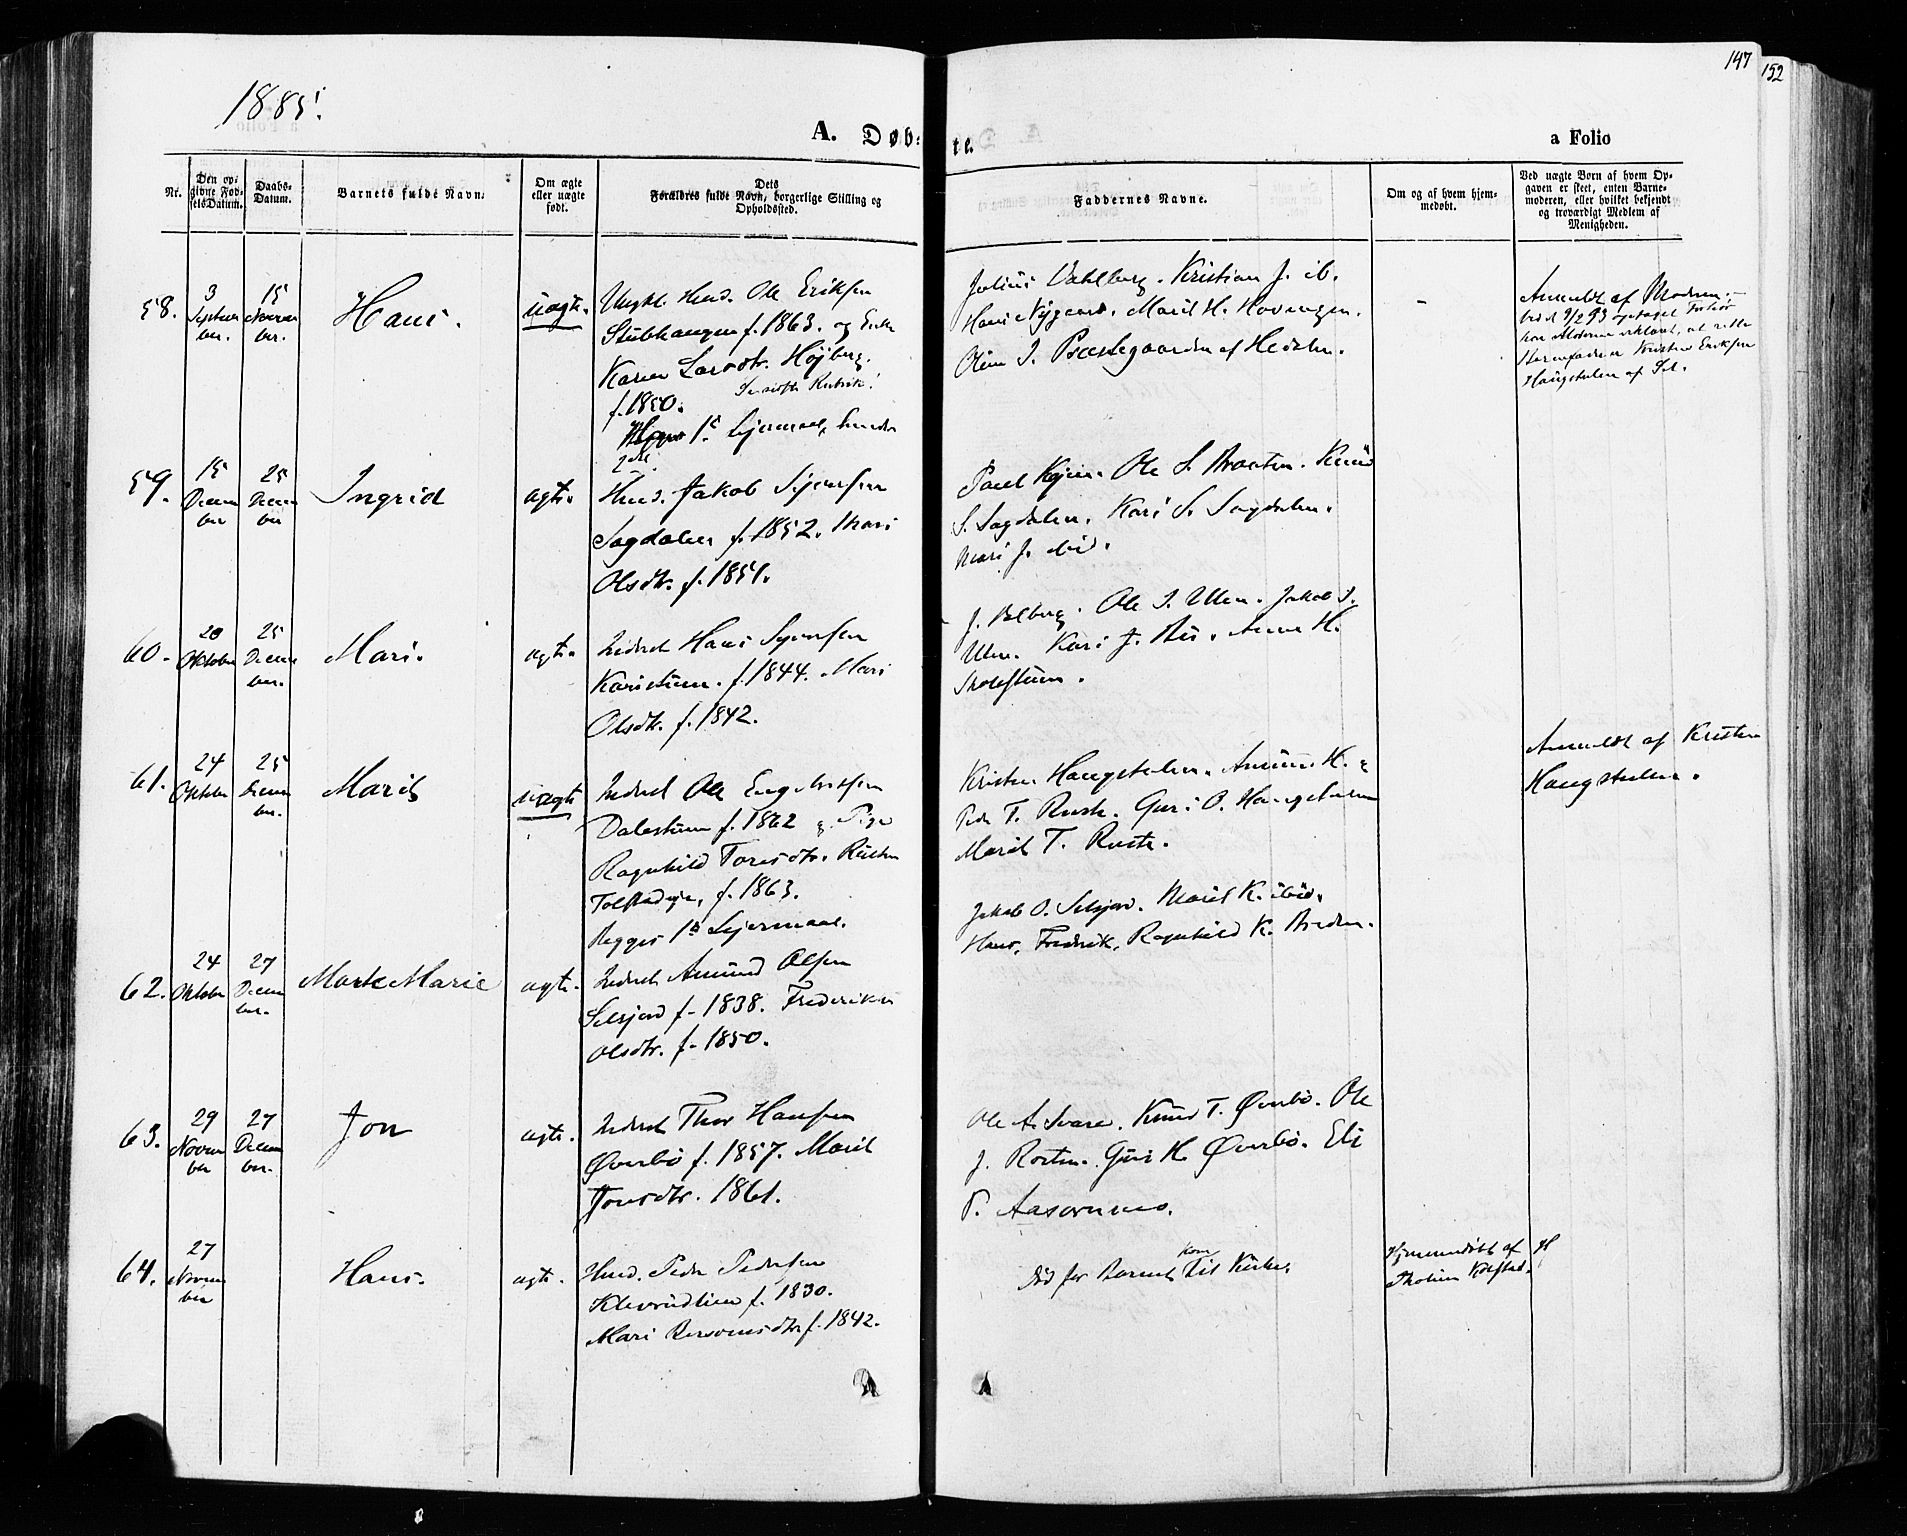 147
152
1885.
A. Døb-
te.
a Folio
Nr.
Den op-
givne Fød-
selsDatum.
Daabs-
Datum.
Barnets fulde Navn.
Om ægte
eller uægte
født.
Dets
Forældres fulde Navn, borgerlige Stilling og
Opholdssted.
Faddernes Navne.
Om og af hvem hjem-
medøbt.
Ved uægte Børn af hvem Op-
gaven er skeet, enten Barne-
moderen, eller hvilket bekjendt
og troværdigt Medlem af
Menigheden.
58.
3
Septem
ber.
15
Novem
ber.
Hans.
uægte.
Ungkl. Ole Eriksen
Stubhaugen f. 1863. og Enke
Karen Larsdtr. Højberg.
f. 1850.
1ste Lejermaal, hendes
2det
Julius Dahlberg. Kristian J. ib.
Hans Nygaard. Marit H. Hovengen.
J. Præstegaarden af Hedalen.
-
Anmeldt af Moderen.
9/2 93 optaget Forhør
har Moderen erklæret, at rette
Barnefader er Kristen Eriksen
Haugstulen af Sel.
59.
15
Decem
ber
25
Decem
ber
Ingrid
ægte.
Husm. Jakob Syversen
Sagdalen f. 1852. Mari
Olsdtr. f. 1851.
Ole S. Braaten. Knud
S. Sagdalen. Kari S. Sagdalen.
Mari J. ibid.
60.
20
Oktober
25
Decem
ber.
Mari.
ægte.
Inderst Hans Syversen
f. 1844. Mari
Olsdtr. f. 1842.
J. Ole J. Ulen. Jakob J.
Ulen. Kari J. Anne H.
61.
24
Oktober
25
Decem
ber.
Marit
uægte
Inderst Ole Engebretsen
f. 1862 og Pige
Ragnhild Toresdtr. Rusten
f. 1863.
Begges 1ste Lejermaal.
Kristen Haugstulen. Amund H.
Peder T. Rusten. Guri O. Haugstulen
Marit T. Rusten.
Anmeldt af Kristen
Haugstulen.
62.
24
Oktober
27
Decem
ber.
Marte Marie
ægte.
Inderst Amund Olsen
Selsjord f. 1838. Frederikke
Olsdtr. f. 1850.
Jakob O. Selsjord. Marit K. ibid.
Hans, Fredrik, Ragnhild K. Breden.
63.
29
Novem
ber
27
Decem
ber.
Jon
ægte.
Inderst Thor Hansen
Øverbö f. 1857. Marit
Jonsdtr. 1861.
Ole A. Svare. Knud T. Øverbö. Ole
J. Rosten. Guri H. Øverbö. Eli
P. Aasaaren
64.
27
Novem
ber
Hans.
ægte.
Husm. Peder Pedersen
Klevrudlien f. 1830.
Mari f. 1842.
Död før Barnet kom til Kirke.
Hjemmedøbt af
Kolstad.